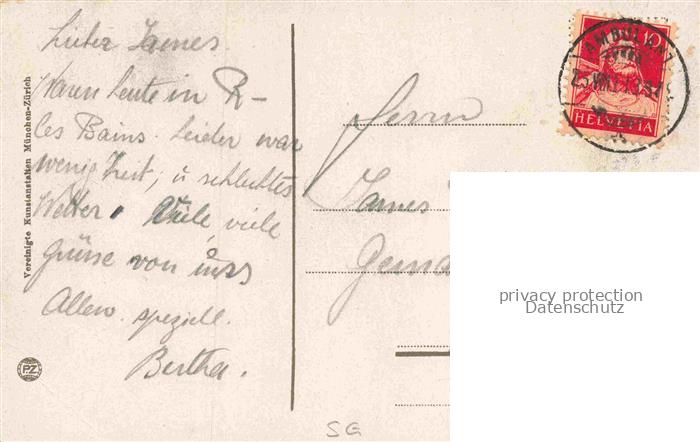 Lieber James.
Waren heute in R-
les Bains. Leider war
wenig Zeit, u schlechtes
Wetter. Viele, viele
Grüsse von uns
Allen. speziell.
Bertha.
Vereinigte Kunstanstalten München-Zürich
PZ
Herrn
James
AMBULANT
10
HELVETIA
privacy protection
Datenschutz
SG